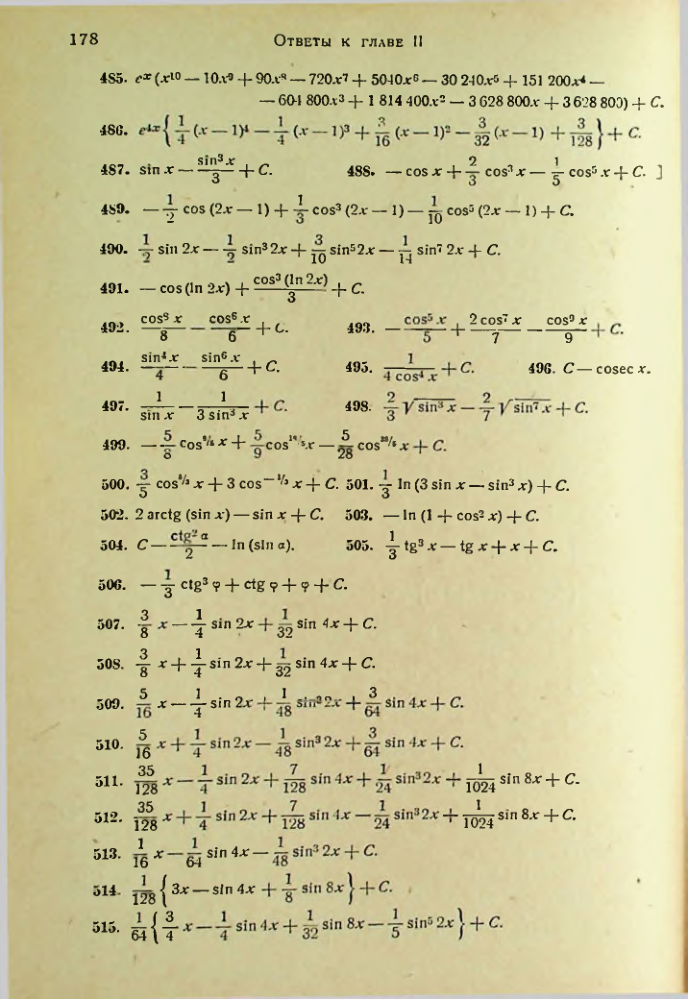 178 Ответы к главе II
485. eˣ (x¹⁰ — 10x⁹ + 90x⁸ — 720x⁷ + 5040x⁶ — 30 240x⁵ + 151 200x⁴ —
— 604 800x³ + 1 814 400x² — 3 628 800x + 3 628 800) + C.
486. e⁴ˣ { 1/4 (x — 1)⁴ — 1/4 (x — 1)³ + 3/16 (x — 1)² — 3/32 (x — 1) + 3/128 } + C.
487. sin x — sin³ x/3 + C. 488. — cos x + 2/3 cos³ x — 1/5 cos⁵ x + C. ]
489. — 1/2 cos (2x — 1) + 1/3 cos³ (2x — 1) — 1/10 cos⁵ (2x — 1) + C.
490. 1/2 sin 2x — 1/2 sin³ 2x + 3/10 sin⁵ 2x — 1/14 sin⁷ 2x + C.
491. — cos (ln 2x) + cos³ (ln 2x)/3 + C.
492. cos⁸ x/8 — cos⁶ x/6 + C. 493. — cos⁵ x/5 + 2 cos⁷ x/7 — cos⁹ x/9 + C.
494. sin⁴ x/4 — sin⁶ x/6 + C. 495. 1/(4 cos⁴ x) + C. 496. C — cosec x.
497. 1/sin x — 1/(3 sin³ x) + C. 498. 2/3 √(sin³ x) — 2/7 √(sin⁷ x) + C.
499. — 5/8 cos^(8/5) x + 5/9 cos^(18/5) x — 5/28 cos^(28/5) x + C.
500. 3/5 cos^(5/3) x + 3 cos^(—1/3) x + C. 501. 1/3 ln (3 sin x — sin³ x) + C.
502. 2 arctg (sin x) — sin x + C. 503. — ln (1 + cos² x) + C.
504. C — ctg² α/2 — ln (sin α). 505. 1/3 tg³ x — tg x + x + C.
506. — 1/3 ctg³ φ + ctg φ + φ + C.
507. 3/8 x — 1/4 sin 2x + 1/32 sin 4x + C.
508. 3/8 x + 1/4 sin 2x + 1/32 sin 4x + C.
509. 5/16 x — 1/4 sin 2x + 1/48 sin³ 2x + 3/64 sin 4x + C.
510. 5/16 x + 1/4 sin 2x — 1/48 sin³ 2x + 3/64 sin 4x + C.
511. 35/128 x — 1/4 sin 2x + 7/128 sin 4x + 1/24 sin³ 2x + 1/1024 sin 8x + C.
512. 35/128 x + 1/4 sin 2x + 7/128 sin 4x — 1/24 sin³ 2x + 1/1024 sin 8x + C.
513. 1/16 x — 1/64 sin 4x — 1/48 sin³ 2x + C.
514. 1/128 { 3x — sin 4x + 1/8 sin 8x } + C.
515. 1/64 { 3/4 x — 1/4 sin 4x + 1/32 sin 8x — 1/5 sin⁵ 2x } + C.